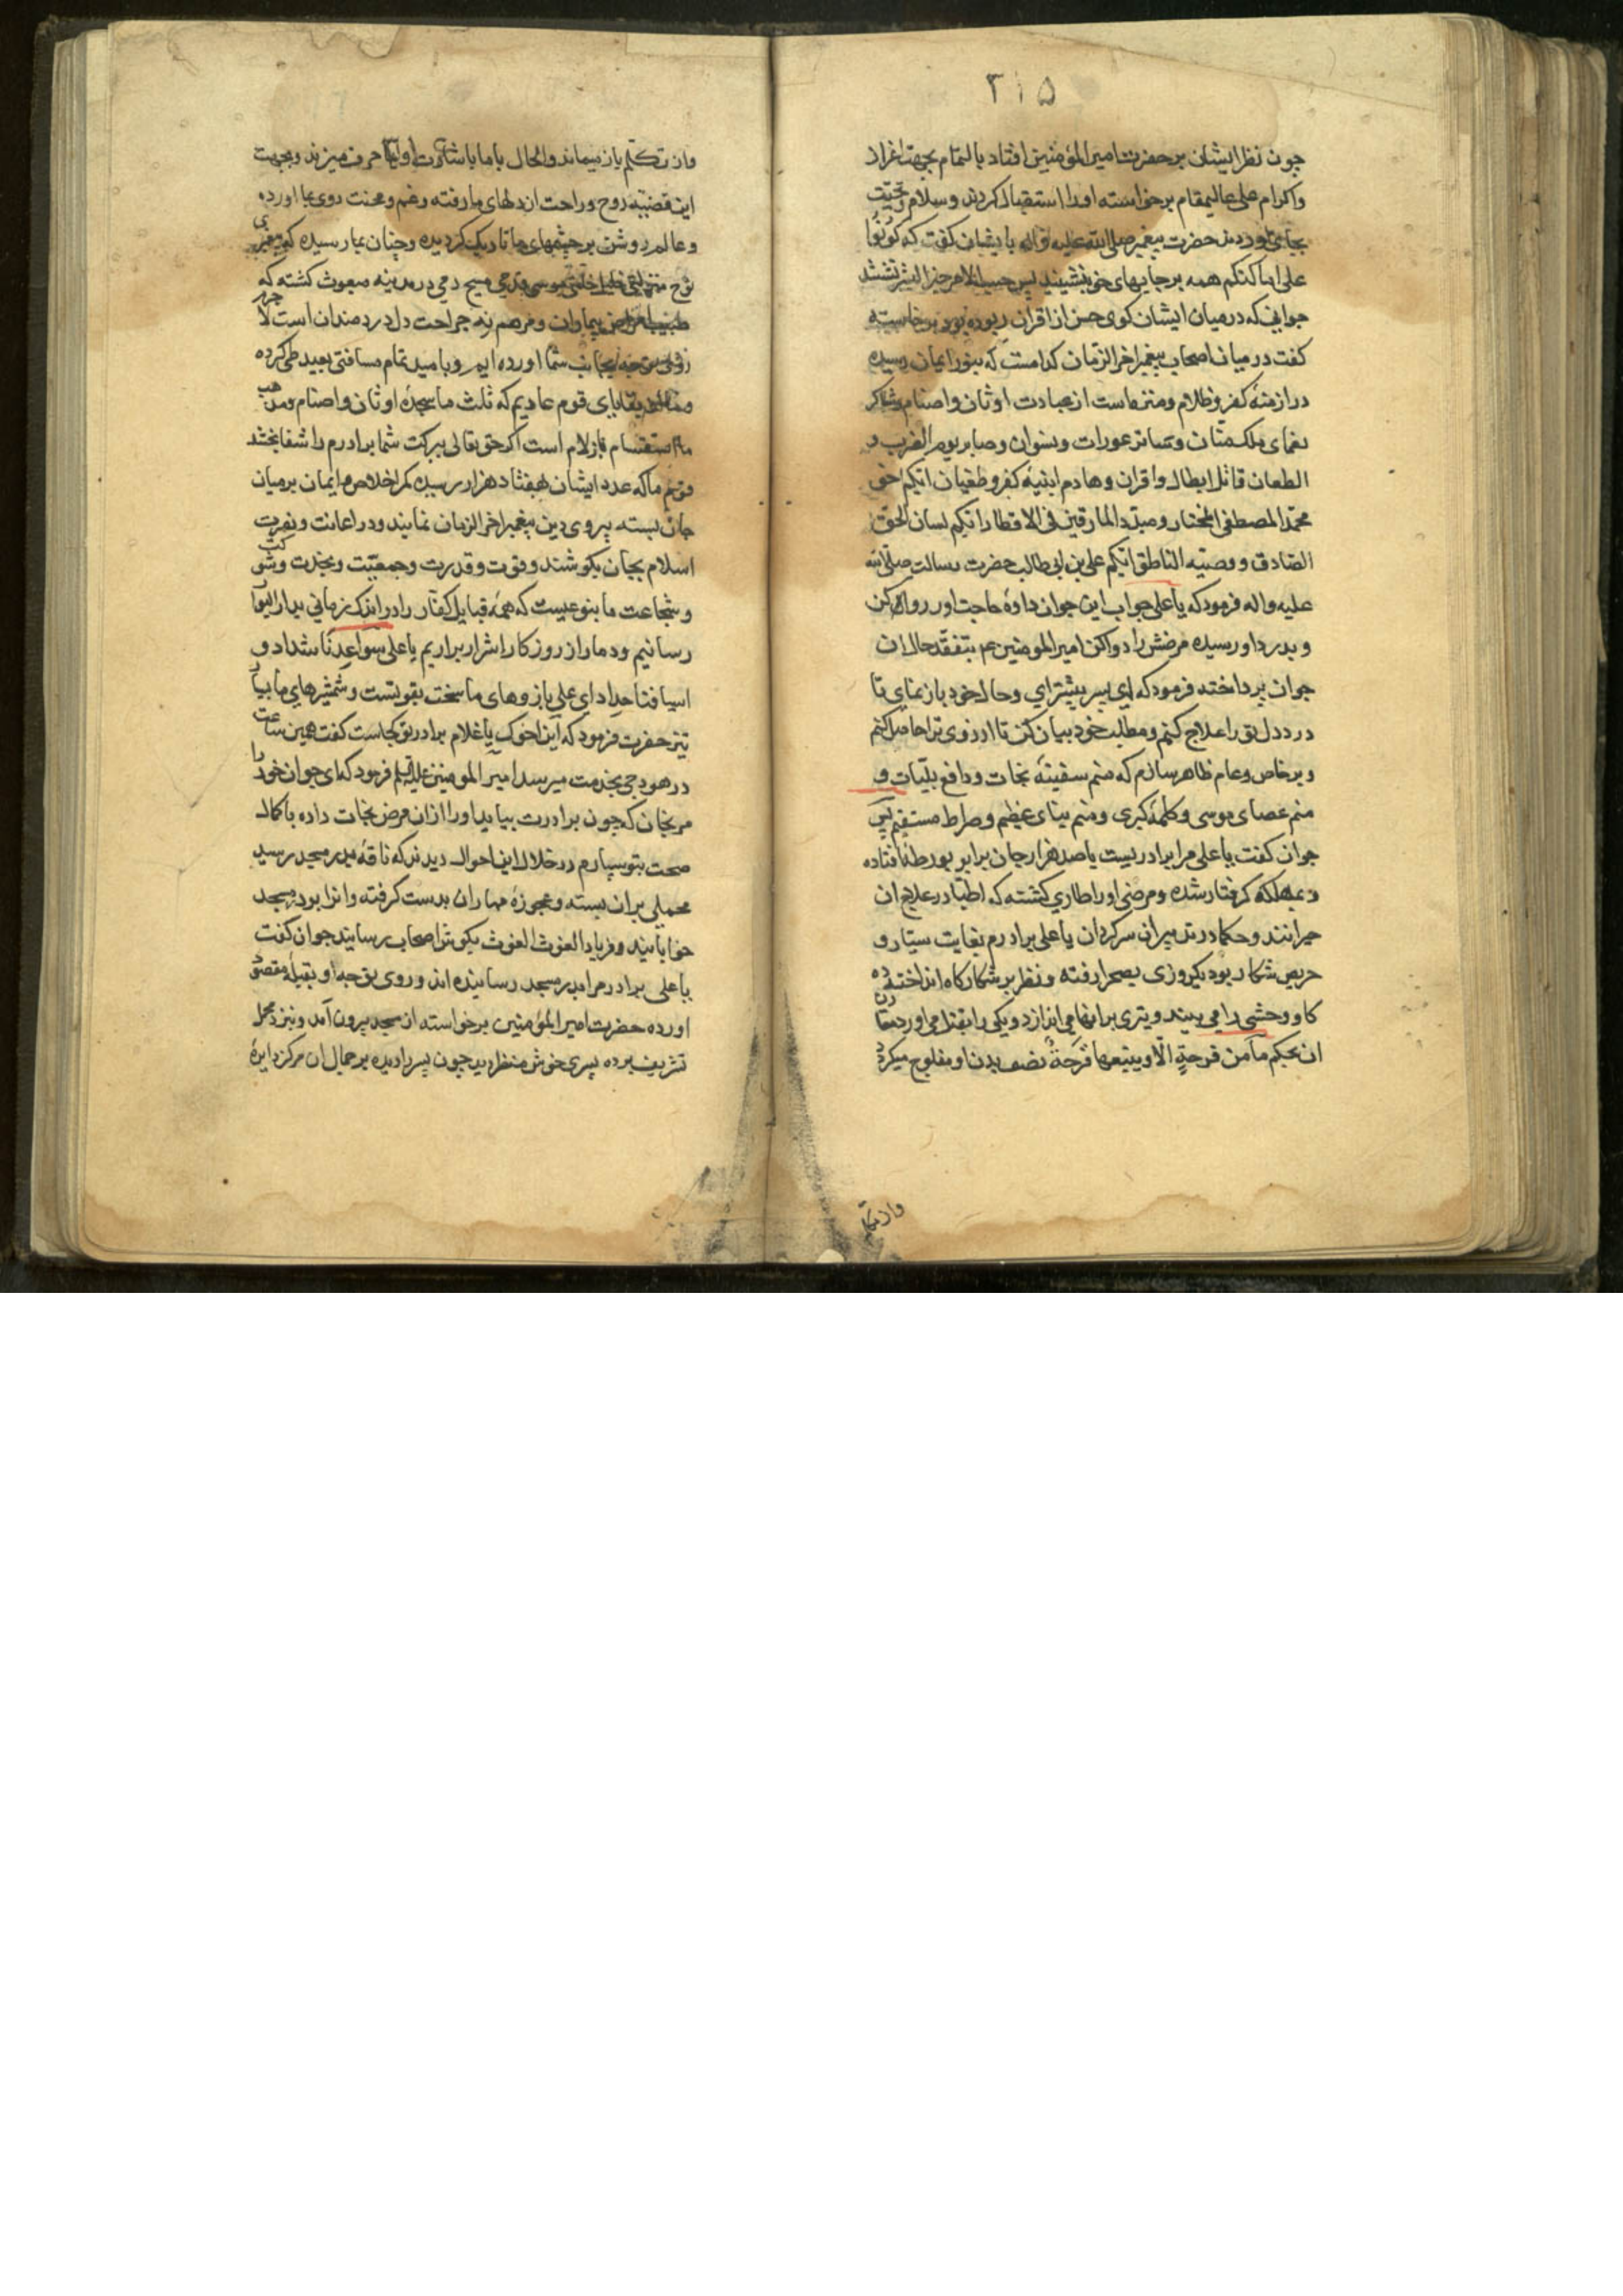 ۳۱۵
چون نظر ایشان بر حضرت امیر المؤمنین افتاد بالتمام بجهت اعزاز
واکرام علی عالیمقام برخواسته اورا استقبال کردند وسلام وتحیت
بجای اوردند حضرت پیغمبر صلی الله علیه واله بایشان کفت که کونوا
علی اماکنکم همه برجایهای خود بنشینید پس حسب الامر خیر البشر نشستند
جوانی که درمیان ایشان کوی حسن از اقران ربوده بود برخاسته
کفت درمیان اصحاب پیغمبر اخر الزمان کدامست که بنور ایمان رسیده
در ازمنهٔ کفر وظلام ومنزهاست از عبادت اوثان واصنام وشاکر
نعمای ملک منان وساتر عورات ونسوان وصابر یوم الضرب و
الطعان قاتل ابطال واقران وهادم ابنیهٔ کفر وطغیان ایکم اخو
محمد المصطفی المختار ومبدد المارقین فی الاقطار ایکم لسان الحق
الصادق ووصیه الناطق ایکم علی بن ابی طالب حضرت رسالت صلی الله
علیه واله فرمود که یا علی جواب این جوان داده حاجت او رروا کن
وبدرد او رسیده مرضش را دوا کن امیر المومنین عم بتفقد حال ان
جوان پرداخته فرمود که ای پسر پیشتر ای وحال خود باز نمای تا
درد دل تو را علاج کنم ومطلب خود بیان کن تا ارزوی ترا حاصل کنم
وبرخاص وعام ظاهر سازم که منم سفینهٔ نجات ودافع بلیات و
منم عصای موسی وکلمهٔ کبری ومنم بنای عظیم وصراط مستقیم پس
جوان کفت یا علی مرا برادریست با صد هزار جان برابر بورطهٔ افتاده
وبمهلکه کرفتار شده ومرضی اورا طاری کشته که اطبا در علاج ان
حیرانند وحکما در تدبیر ان سرکردان یا علی برادرم بغایت سیار و
حریص شکار بود یکروزی بصحرا رفته ونظر بر شکارکاه انداخته ده
کاو وحشی را می بیند وتیری برانها می اندازد ویکی را بقتل می اورد مقارن
ان بحکم ما من فرحةٍ الّا ویتبعها قرحةٌ نصف بدن او مفلوج میکردد
واز تکلم
واز تکلم باز میماند والحال با ما باشارت وایما حرف میزند وبجهت
این قضیه روح وراحت از دلهای ما رفته وغم ومحنت روی بما اورده
وعالم روشن بر چشمهای ما تاریک کردیده وچنان بما رسیده که پیغمبری
نوح منزلتی خلیل خلتی موسی یدی مسیح دمی در مدینه مبعوث کشته که
طبیب امراض بیماران ومرهم نه جراحت دل دردمندان است لاجرم
روی توجه بجانب شما اورده ایم وبامید تمام مسافتی بعید طی کرده
وما از بقایای قوم عادیم که ثلث ما سجدهٔ اوثان واصنام ومذهب
ما استقسام بازلام است اکر حق تعالی ببرکت شما برادرم را شفا بخشد
قوم ما که عدد ایشان بهفتاد هزار رسیده کمر اخلاص وایمان برمیان
جان بسته پیروی دین پیغمبر اخر الزمان نمایند ودر اعانت ونصرت
اسلام بجان بکوشند وقوت وقدرت وجمعیت ونجدت وشوکت
وشجاعت ما بنوعیست که همهٔ قبایل کفار را در اندک زمانی بدار البوار
رسانیم ودمار از روزکار اشرار براریم یا علی سواعدنا شداد و
اسیافنا حداد ای علی بازوهای ما سخت بقوتست وشمشیرهای ما بسیار
تیز حضرت فرمود که این اخوک یا غلام برادر تو کجاست کفت همین ساعت
در هودجی بخدمت میرسد امیر المومنین علیه السلم فرمود که ای جوان خود را
مرنجان که چون برادرت بیاید اورا ازان مرض نجات داده با کمال
صحت بتو سپارم در خلال این احوال دیدند که ناقه بدر مسجد رسید
محملی بران بسته وعجوزهٔ مهار ان بدست کرفته وانرا بدر مسجد
خوابانید وفریاد الغوث الغوث بکوش اصحاب رسانید جوان کفت
یا علی برادر مرا بدر مسجد رسانیده اند وروی توجه او بقبلهٔ مقصود
اورده حضرت امیر المؤمنین برخواسته از مسجد بیرون آمد ونزد محمل
تشریف برده پسری خوش منظر دید چون پسر را دیده برجمال ان مرکز دایرهٔ